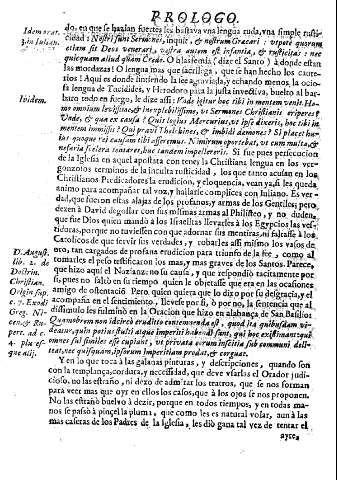 PROLOGO.
do, en que se hazian fuertes les bastava vna lengua ruda, vna simple rusti-
cidad: Nostri sunt Sermones, inquit, & nostrum Græcari: vipote quorum
etiam sit Deos venerari, vestra autem est infantia, & rusticitas: nec
quicquam aliud quàm Crede. O blasfemia (dize el Santo) à donde estan
las mordazas? O lengua mas que sacrilega, que se han hecho los caute-
rios? Aqui es donde hiriendo la fee agraviada, y echando menos, la ocio-
sa lengua de Tucidides, y Herodoto para la justa invectiva, buelto al bar-
baro todo en fuego, le dize assi: Vnde igitur hoc tibi in mentem venit. Ho-
mo omnium levissime, & inexplebilissime, vt Sermones Christianis eriperes?
Vnde, & qua ex causa? Quis logius Mercurius, vt ipse dixeris, hoc tibi in
mentem immisit? Qui pravi Thelchines, & invidi dæmones? Si placet hu-
ius quoque rei causam tibi afferemus. Nimirum oportebat, vt cum multa, &
nefaria scelera tenteres, huc tandem impellereris. Si fue pues persecucion
de la Iglesia en aquel apostata con toner la Christiana lengua en los ver-
gonzosos terminos de la inculta rusticidad, los que tanto acusan en los
Christianos Predicadores la erudicion, y eloquencia, vean yà si les queda
animo para acompañar tal voz, y hallarse complices con Juliano. Es ver-
dad, que fueron estas alajas de los profanos, y armas de los Gentiles; pero
dexen à David degollar con sus mismas armas al Philisteo, y no duden,
que fue Dios quien mandò à los Israelitas llevarles à los Egypcios las ves-
tiduras, porque no tuviessen con que adornar sus mentiras, ni falsasse à los
Catolicos de que servir sus verdades, y robarles assi mismo los vasos de
oro, tan cargados de profana erudicion para triunfo de la fee, como al
tomarles el peso testificaron los mas, y mas graves de los Santos. Parece,
que hizo aquel Nazianzeno su causa, y que respondiò tacitamente por
si, pues no faltò en su tiempo quien le objetasse que era en las ocasiones
amigo de ostentacion. Pero quien quiera que lo dixo por su desgracia, y el
acompaña en el sentimiento, llevese por si, ò por no, la sentencia que al
dissimulo les fulminò en la Oracion que hizo en alabança de San Basilio:
Quamobrem non idcircò eruditio contemnenda est, quod ita quibusdam vi-
deatur, quin potiùs stulti atque imperiti habendi sunt, qui hoc existimant qui
omnes sui similes esse cupiunt, vt privata eorum inscitia sub communi deli-
teat, nec quisquam, ipsorum imperitiam prodat, & corguat.
Y en lo que toca à las galanas pinturas, y descripciones, quando son
con la templança, cordura, y necessidad, que deve vsarlas el Orador judi-
cioso, no las estraño, ni dexo de admitar los teatros, que se nos forman
para veer mas que oyr en ellos los casos, que à los ojos se nos proponen.
No las estrañò buelvo à dezir, porque en todos tiempos, y en todas ma-
nos se passò à pinçel la pluma, que como les es natural volar, aun à las
mas caseras de los Padres de la Iglesia, les diò gana tal vez de tentar el
ayre,
Idem orat.
3. in Julian.
Ibidem.
D. August.
lib. 2. de
Doctrin.
Christian.
Origin sup.
c. 2. Exodi
Greg. Ni-
cens. in Ro-
pere. ad c.
4. plures-
que alij.